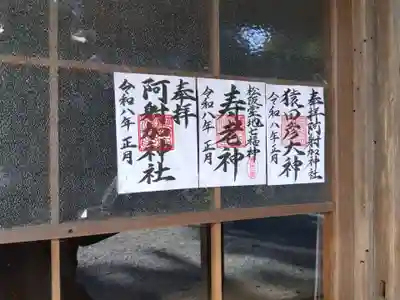 奉拝阿射加神社
猿田彦大神
令和八年正月
松阪霊地七福神
寿老神
令和八年正月
奉拝
阿射加神社
令和八年正月